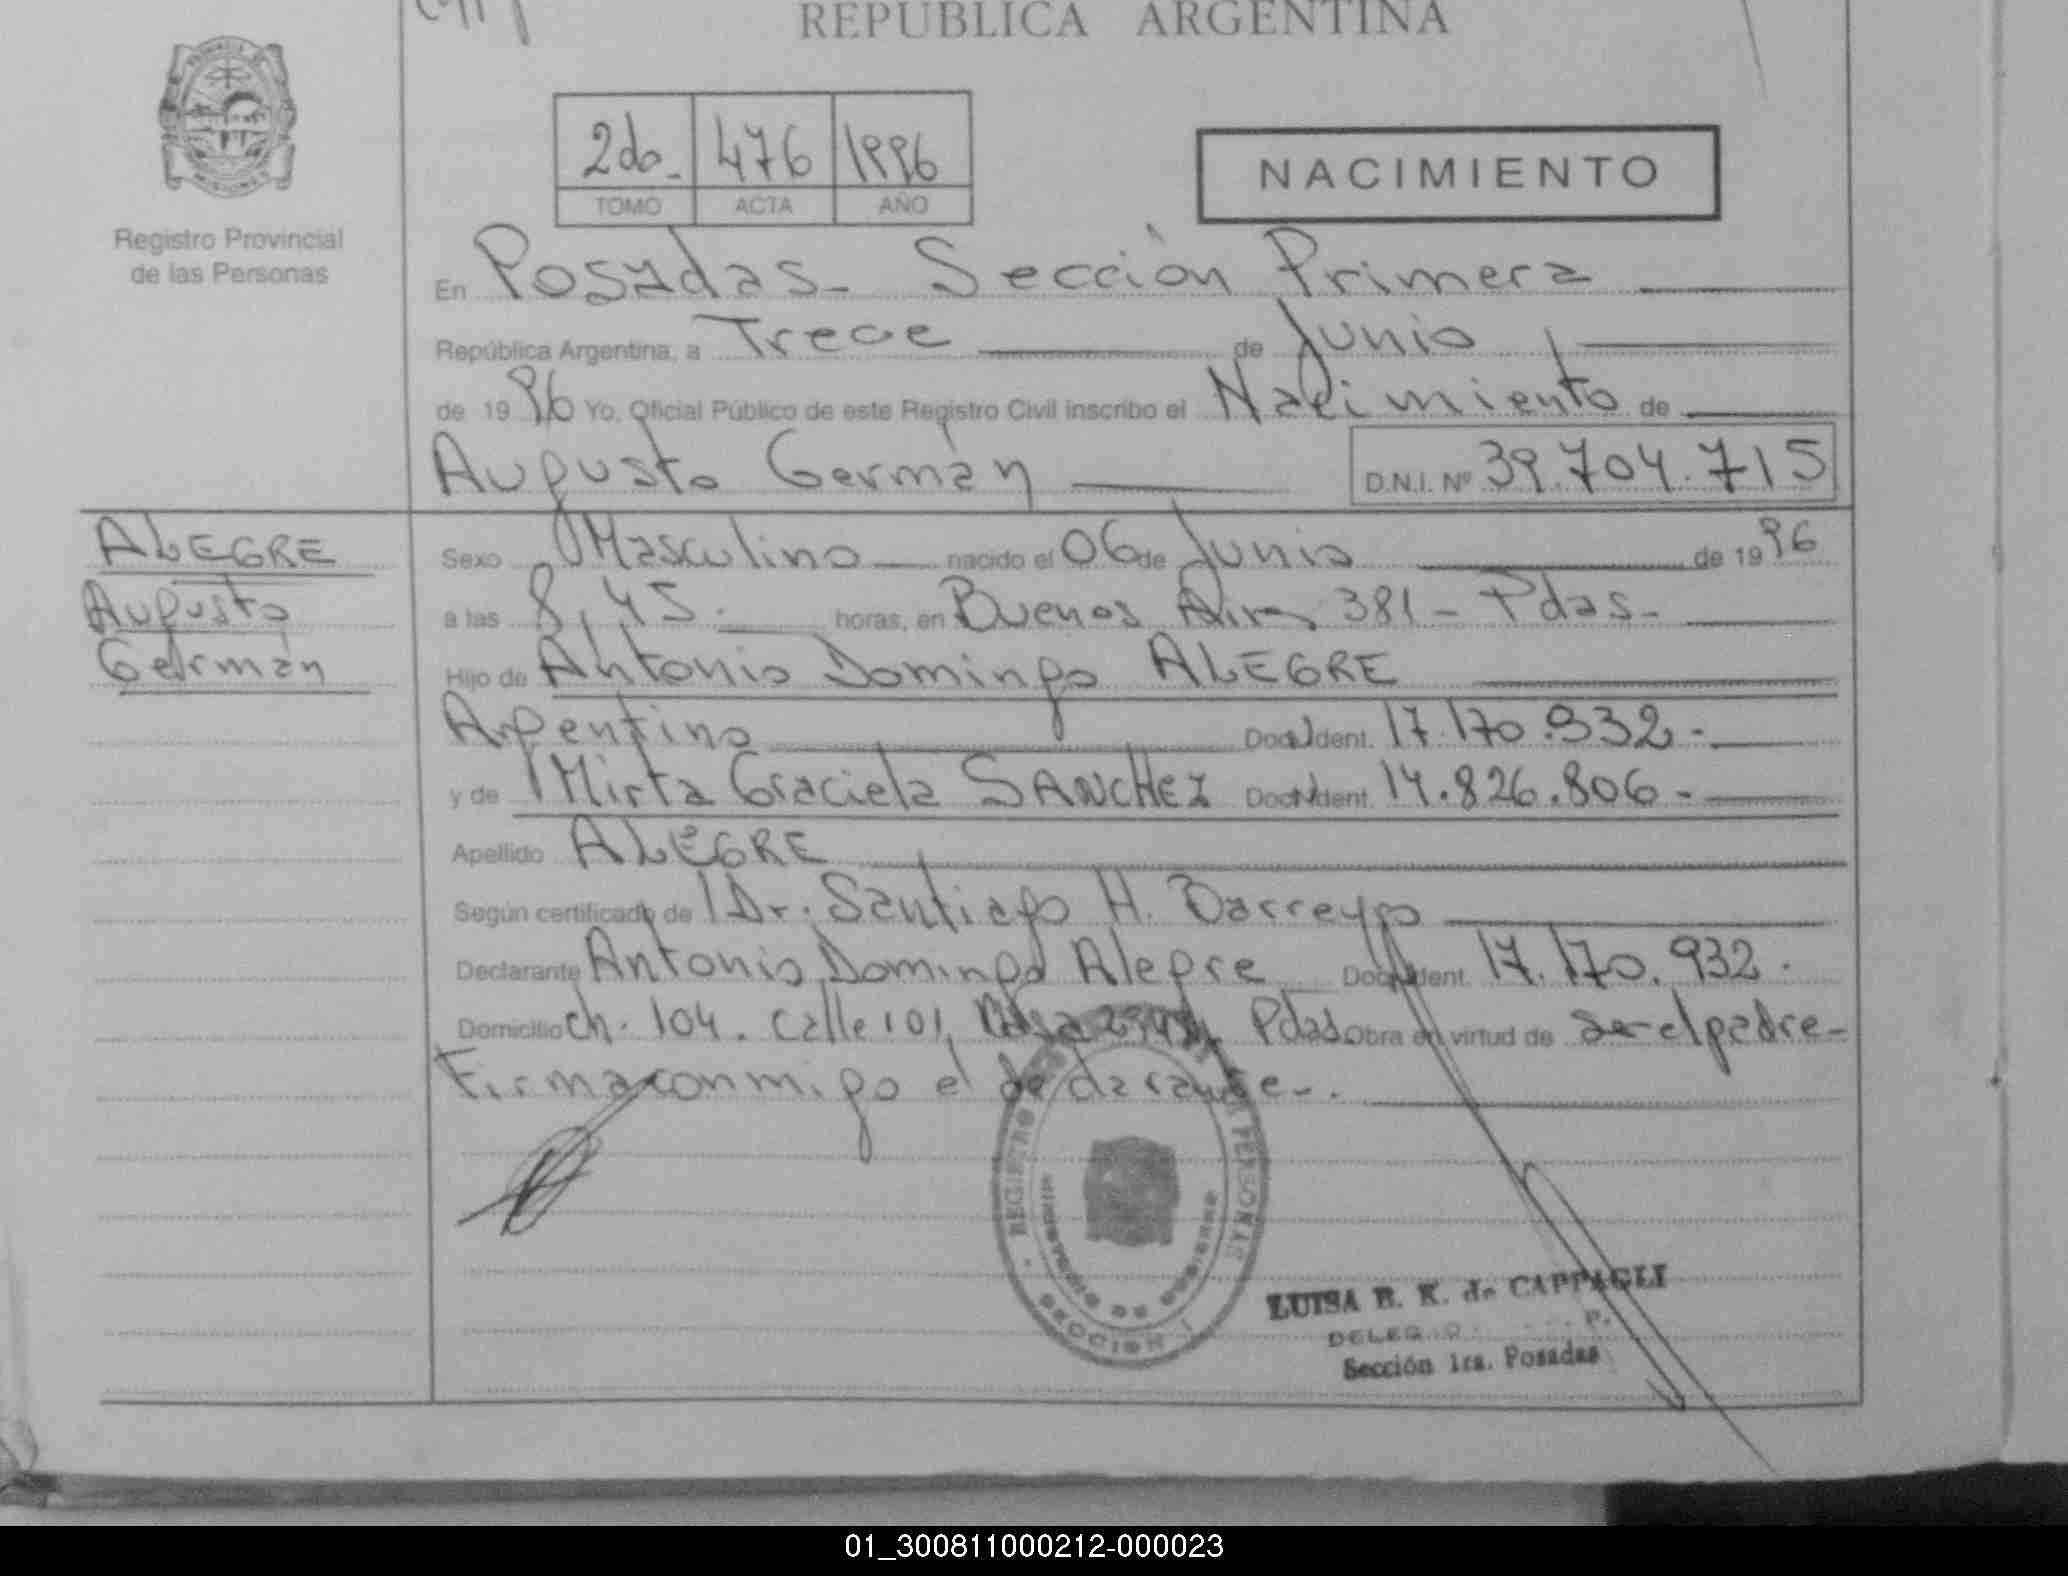 REPUBLICA ARGENTINA
MISIONES
2do. 476 1996
TOMO ACTA AÑO
NACIMIENTO
Registro Provincial
de las Personas
En Posadas - Sección Primera
República Argentina, a Trece de Junio
de 1996 Yo, Oficial Público de este Registro Civil inscribo el Nacimiento de
Augusto Germán D.N.I. Nº 39.704.715
ALEGRE
Augusto
Germán
Sexo Masculino nacido el 06 de Junio de 1996
a las 8,45. horas, en Buenos Aires 381 - Pdas-
Hijo de Antonio Domingo ALEGRE
Argentino Doc. Ident. 17.170.932-
y de Mirta Graciela SANCHEZ Doc. Ident. 14.826.806-
Apellido ALEGRE
Según certificado de Dr. Santiago H. Barreyro
Declarante Antonio Domingo Alegre Doc. Ident. 17.170.932.
Domicilio ch. 104. Calle 101, Pdas. Obra en virtud de ser el padre-
Firma conmigo el declarante-.
REGISTRO PERSONAS
MINISTERIO DE GOBIERNO
SECCION 1
LUISA B. K. de CAPPAGLI
Sección 1ra. Posadas
01_300811000212-000023